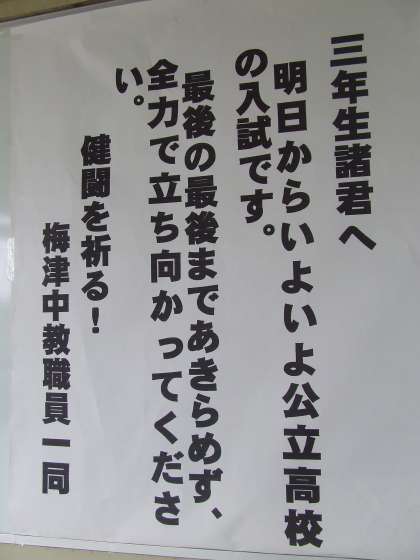 三年生諸君へ
明日からいよいよ公立高校
の入試です。
最後の最後まであきらめず、
全力で立ち向かってくださ
い。
健闘を祈る!
梅津中教職員一同